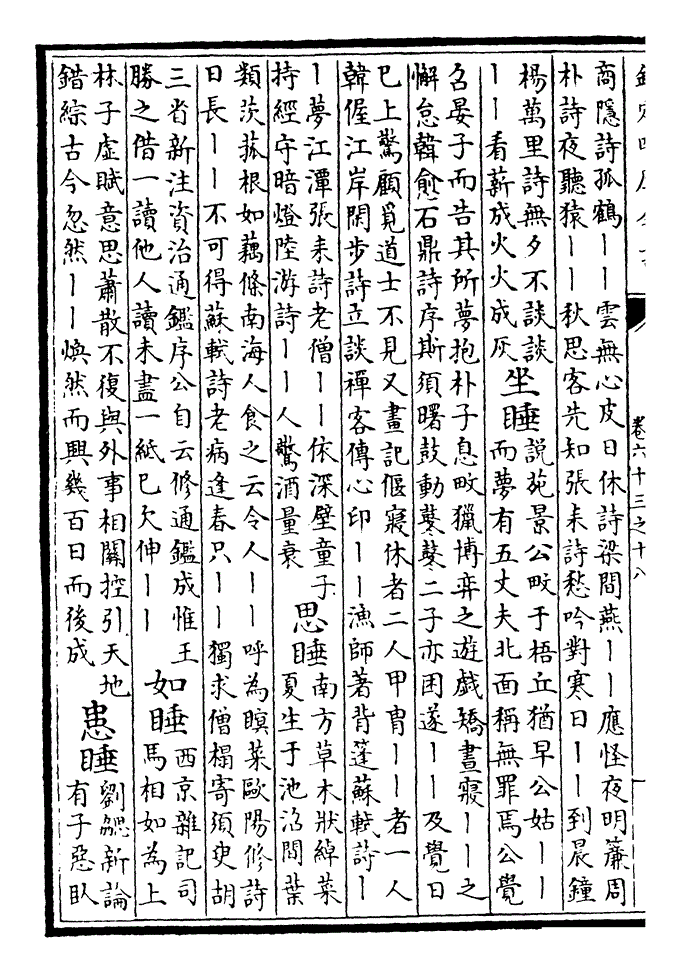 欽定四庫全書
卷六十三之十八
商隱詩孤鶴丨丨雲無心皮日休詩梁間燕丨丨應怪夜明簾周
朴詩夜聽猿丨丨秋思客先知張耒詩愁吟對寒日丨丨到晨鐘
楊萬里詩無夕不談談
丨丨看薪成火火成灰
坐睡
說苑景公畋于梧丘猶早公姑丨丨
而夢有五丈夫北面稱無罪焉公覺
召晏子而告其所夢抱朴子息畋獵博弈之遊戲矯晝寢丨丨之
懈怠韓愈石鼎詩序斯須曙鼓動鼕鼕二子亦困遂丨丨及覺日
巳上驚顧覓道士不見又畫記偃寢休者二人甲冑丨丨者一人
韓偓江岸閑步詩立談禪客傳心印丨丨漁師著背篷蘇軾詩丨
丨夢江潭張耒詩老僧丨丨依深壁童子
持經守暗燈陸游詩丨丨人驚酒量衰
思睡
南方草木狀綽菜
夏生于池沼間葉
類茨菰根如藕條南海人食之云令人丨丨呼為瞑菜歐陽修詩
日長丨丨不可得蘇軾詩老病逢春只丨丨獨求僧榻寄須臾胡
三省新注資治通鑑序公自云修通鑑成惟王
勝之借一讀他人讀未盡一紙巳欠伸丨丨
如睡
西京雜記司
馬相如為上
林子虛賦意思蕭散不復與外事相關控引天地
錯綜古今忽然丨丨煥然而興幾百日而後成
患睡
劉勰新論
有子惡臥